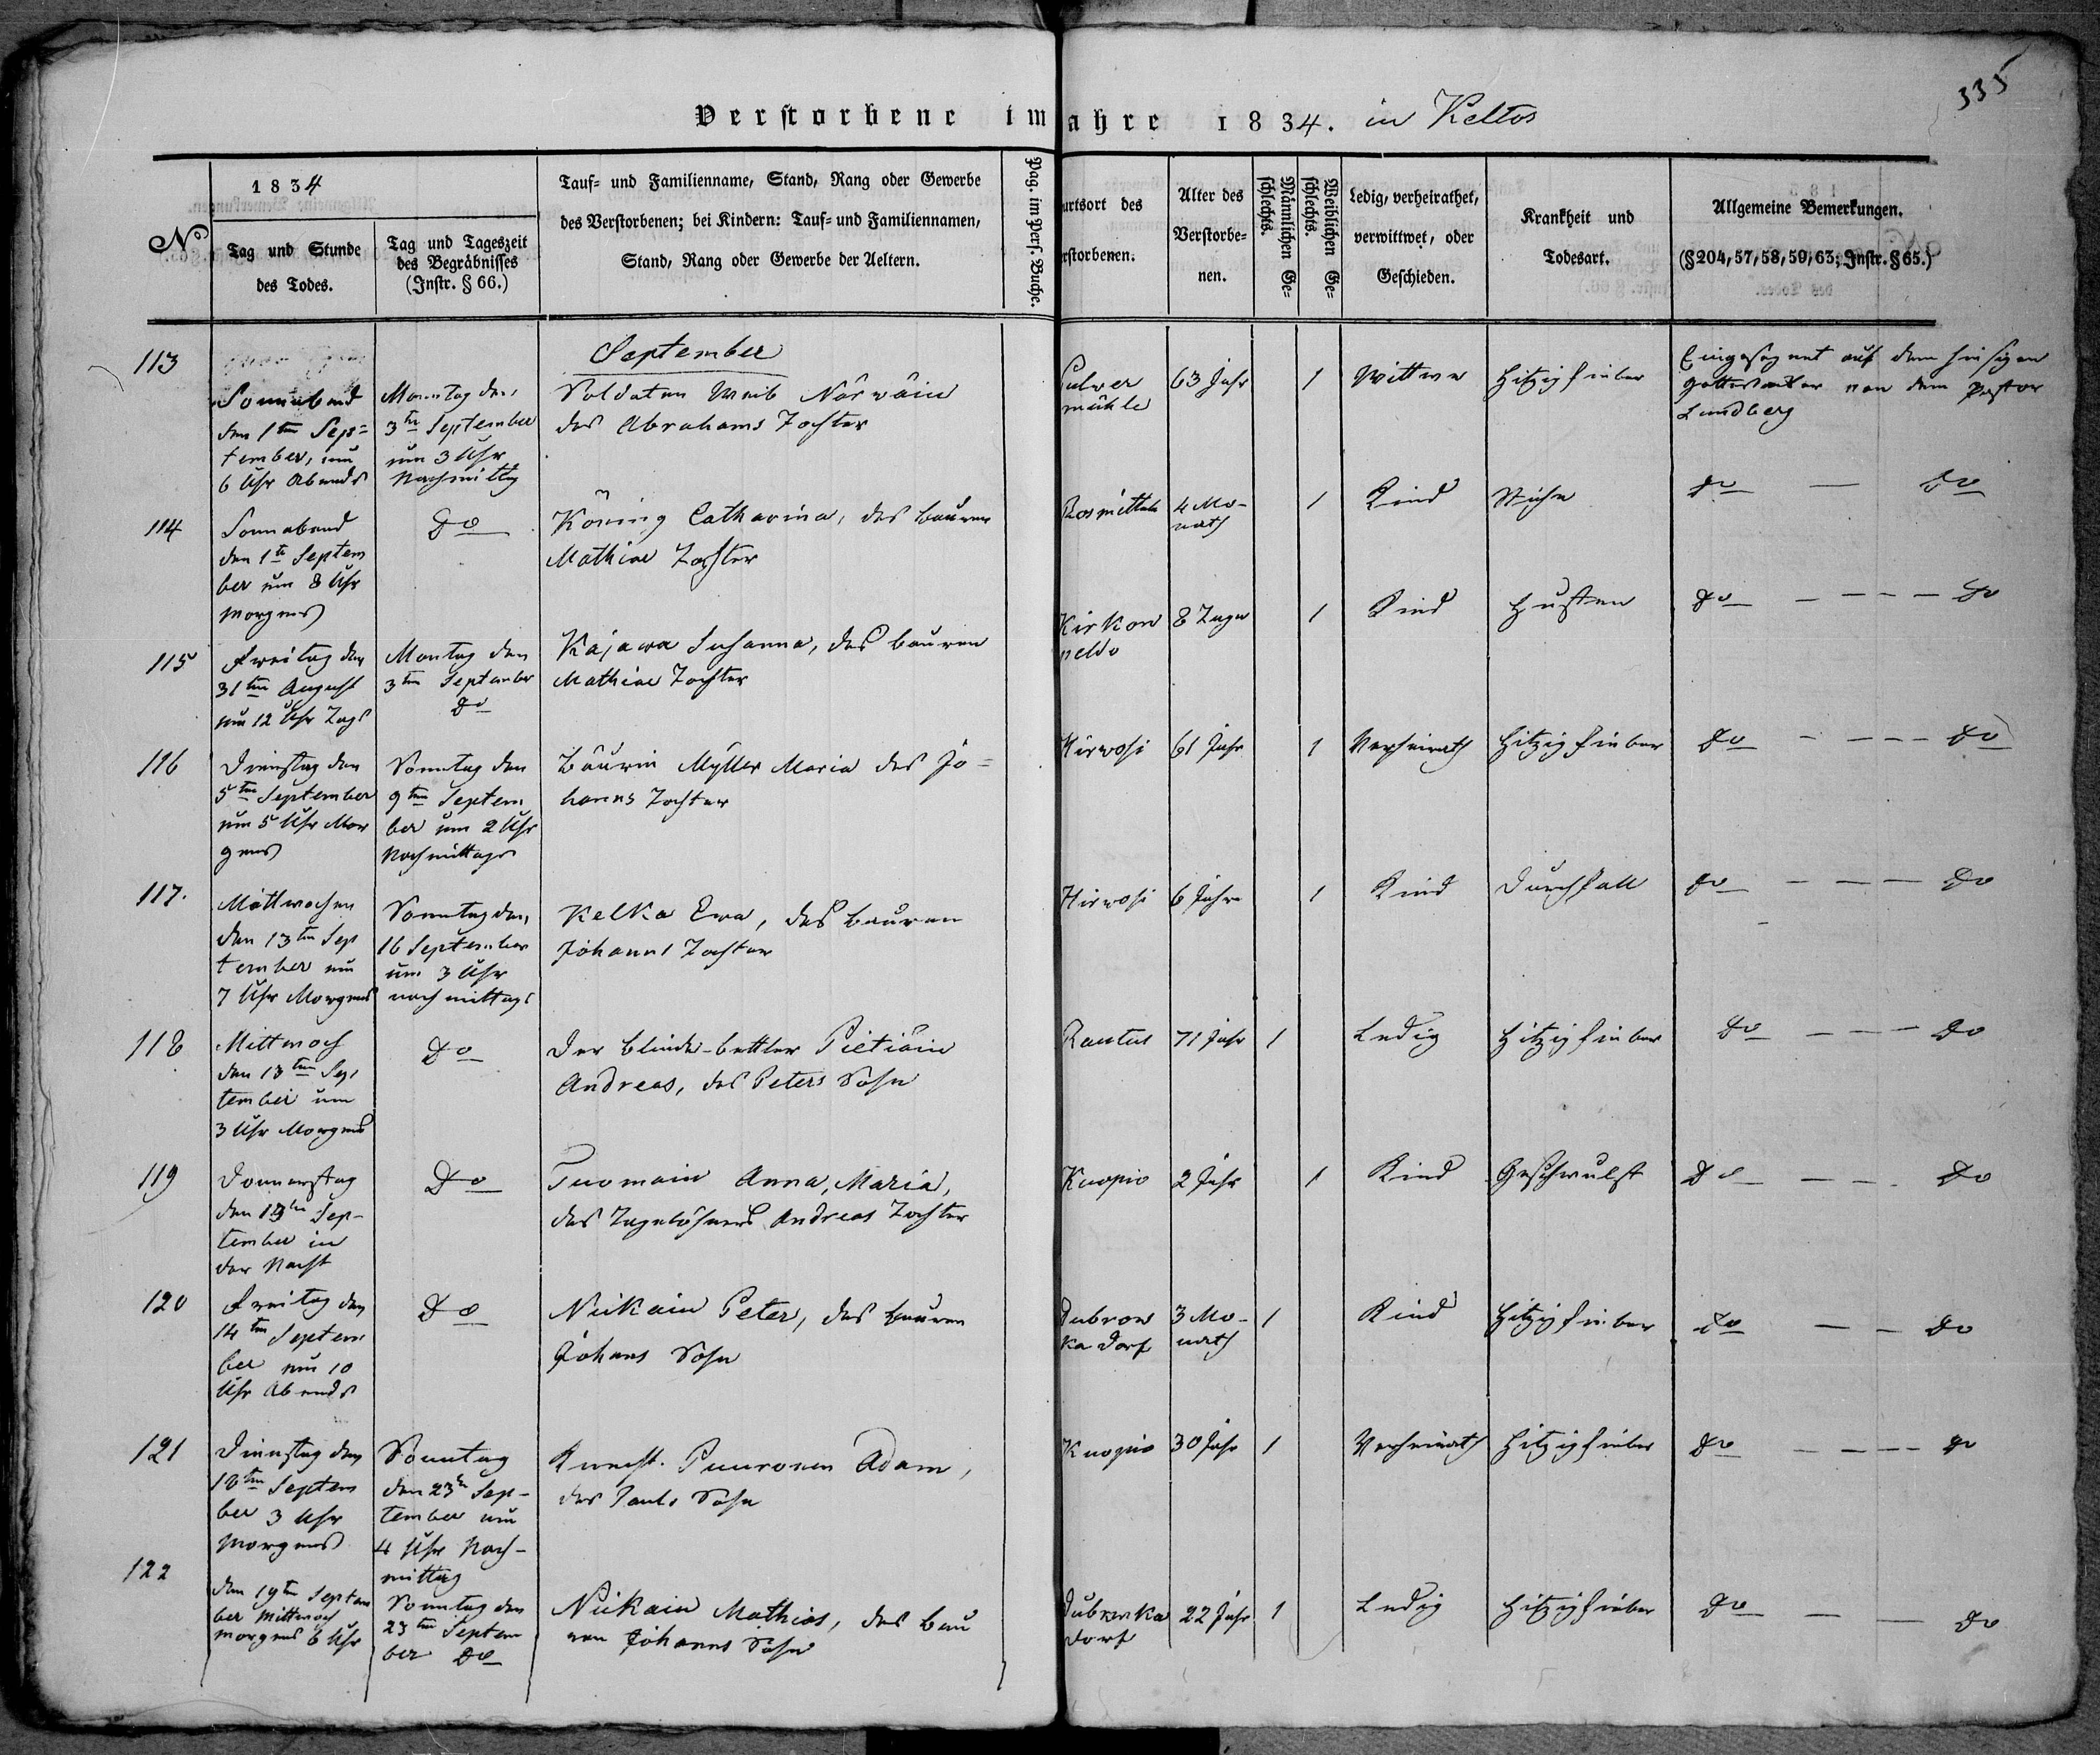 335
Verstorbene im ahre 1834. in Keltos
No
1834
Tag und Stunde
des Todes.
Tag und Tageszeit
des Begräbnisses
(Instr. § 66.)
Tauf= und Familienname, Stand, Rang oder Gewerbe
des Verstorbenen; bei Kindern: Tauf= und Familiennamen,
Stand, Rang oder Gewerbe der Aeltern.
Pag. im Pers. Buche.
urtsort des
rstorbenen.
Alter des
Verstorbe=
nen.
Männlichen Ge=
schlechts.
Weiblichen Ge=
schlechts.
Ledig, verheirathet,
verwittwet, oder
Geschieden.
Krankheit und
Todesart.
Allgemeine Bemerkungen.
(§204, 57, 58, 59, 63; Instr. § 65.)
September
113
Sonnabend
den 1ten Sep=
tember, um
6 Uhr Abends
Monntag den
3ten September
um 3 Uhr
Nachmittag
Soldaten Weib Närwäin
des Abrahams Tochter
Pulwer
mühle
63 Jahr
1
Wittwe
Hitzigfieber
Eingesegnet auf dem hiesigen
Gottesacker von dem Pastor
Lundberg
114
Sonnabend
den 1te Septem
ber um 8 Uhr
Morgens
Do
Köning Catharina, des Bauren
Mathiae Tochter
Rosmitteln
4 Mo-
nath
1
Kind
Do — Do
115
Freitag den
31ten August
um 12 Uhr Tags
Montag den
3ten September
Do
Kajawa Susanna, des Bauren
Mathiae Tochter
Kirkon
peldo
8 Tage
1
Kind
Husten
Do — — — — Do
116
Dienstag den
5ten September
um 5 Uhr Mor
gens
Sonntag den
9ten Septem
ber um 2 Uhr
Nachmittags
Bäurin Myller Maria des Jo=
hanns Tochter
Hirwosi
61 Jahr
1
Verheirath
Hitzigfieber
Do — — — — Do
117.
Mittwochen
den 13ten Sep
tember um
7 Uhr Morgens
Sonntag den
16 September
um 3 Uhr
nachmittags
Kelka Ewa, des Bauren
Johanns Tochter
Hirwosi
6 Jahre
1
Kind
Durchfall
Do — — — — Do
118
Mittwoch
den 13ten Sep
tember um
3 Uhr Morgens
Do
Der blinde-bettler Pietiäin
Andreas, des Peters Sohn
Rantus
71 Jahr
1
Ledig
Hitzigfieber
Do — — — Do
119
Donnerstag
den 13ten Sep-
tember in
der Nacht
Do
Tuomain Anna, Maria,
des Tagelöhners Andreas Tochter
Kuopio
2 Jahr
1
Kind
Geschwulst
Do — — — Do
120
Freitag den
14ten Septem
ber um 10
Uhr Abends
Do
Nukain Peter, des Bauren
Johans Sohn
Dubrow
ka Dorf
3 Mo-
nath
1
Kind
Hitzigfieber
Do — — Do
121
Dienstag den
18ten Septem
ber 3 Uhr
Morgens
Sonntag
den 23ten Sep-
tember um
4 Uhr Nach-
mittag
Knecht. Puuronen Adam,
des Pauls Sohn
Kuopio
30 Jahr
1
Verheirath
Hitzigfieber
Do — — — — Do
122
den 19ten Septem
ber Mittwoch
morgens 6 Uhr
Sonntag den
23ten Septem
ber Do
Nukain Mathias, des Bau
ren Johanns Sohn
Dubrowka
Dorf
22 Jahr
1
Ledig
Hitzigfieber
Do — — Do